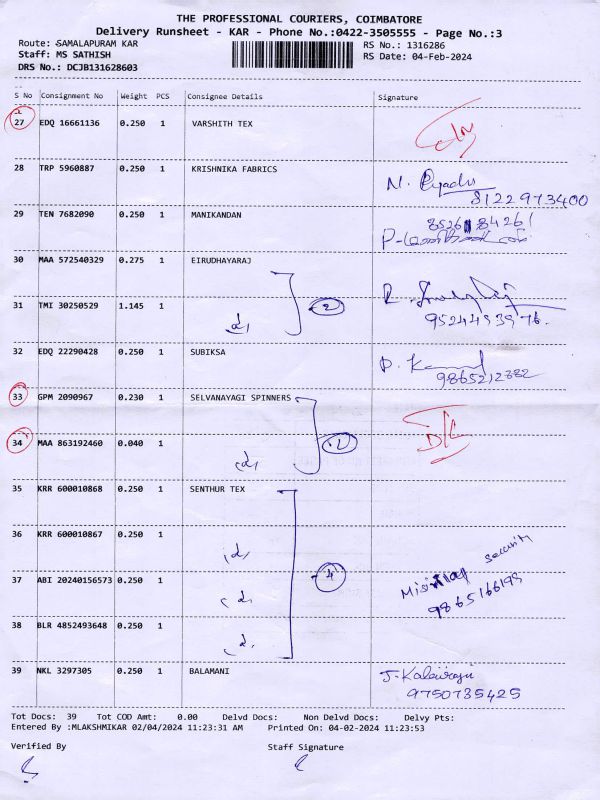 THE PROFESSIONAL COURIERS, COIMBATORE
Delivery Runsheet - KAR - Phone No.:0422-3505555 - Page No.:3
Route: SAMALAPURAM KAR RS No.: 1316286
Staff: MS SATHISH RS Date: 04-Feb-2024
DRS No.: DCJB131628603
S No Consignment No Weight PCS Consignee Details Signature
27 EDQ 16661136 0.250 1 VARSHITH TEX
28 TRP 5960887 0.250 1 KRISHNIKA FABRICS N.
8122973400
29 TEN 7682090 0.250 1 MANIKANDAN
30 MAA 572540329 0.275 1 EIRUDHAYARAJ
31 TMI 30250529 1.145 1 2
32 EDQ 22290428 0.250 1 SUBIKSA
33 GPM 2090967 0.230 1 SELVANAYAGI SPINNERS
34 MAA 863192460 0.040 1 1 D/L
35 KRR 600010868 0.250 1 SENTHUR TEX
36 KRR 600010867 0.250 1 security
37 ABI 20240156573 0.250 1 4
38 BLR 4852493648 0.250 1
39 NKL 3297305 0.250 1 BALAMANI
9750735425
Tot Docs: 39 Tot COD Amt: 0.00 Delvd Docs: Non Delvd Docs: Delvy Pts:
Entered By :MLAKSHMIKAR 02/04/2024 11:23:31 AM Printed On: 04-02-2024 11:23:53
Verified By Staff Signature